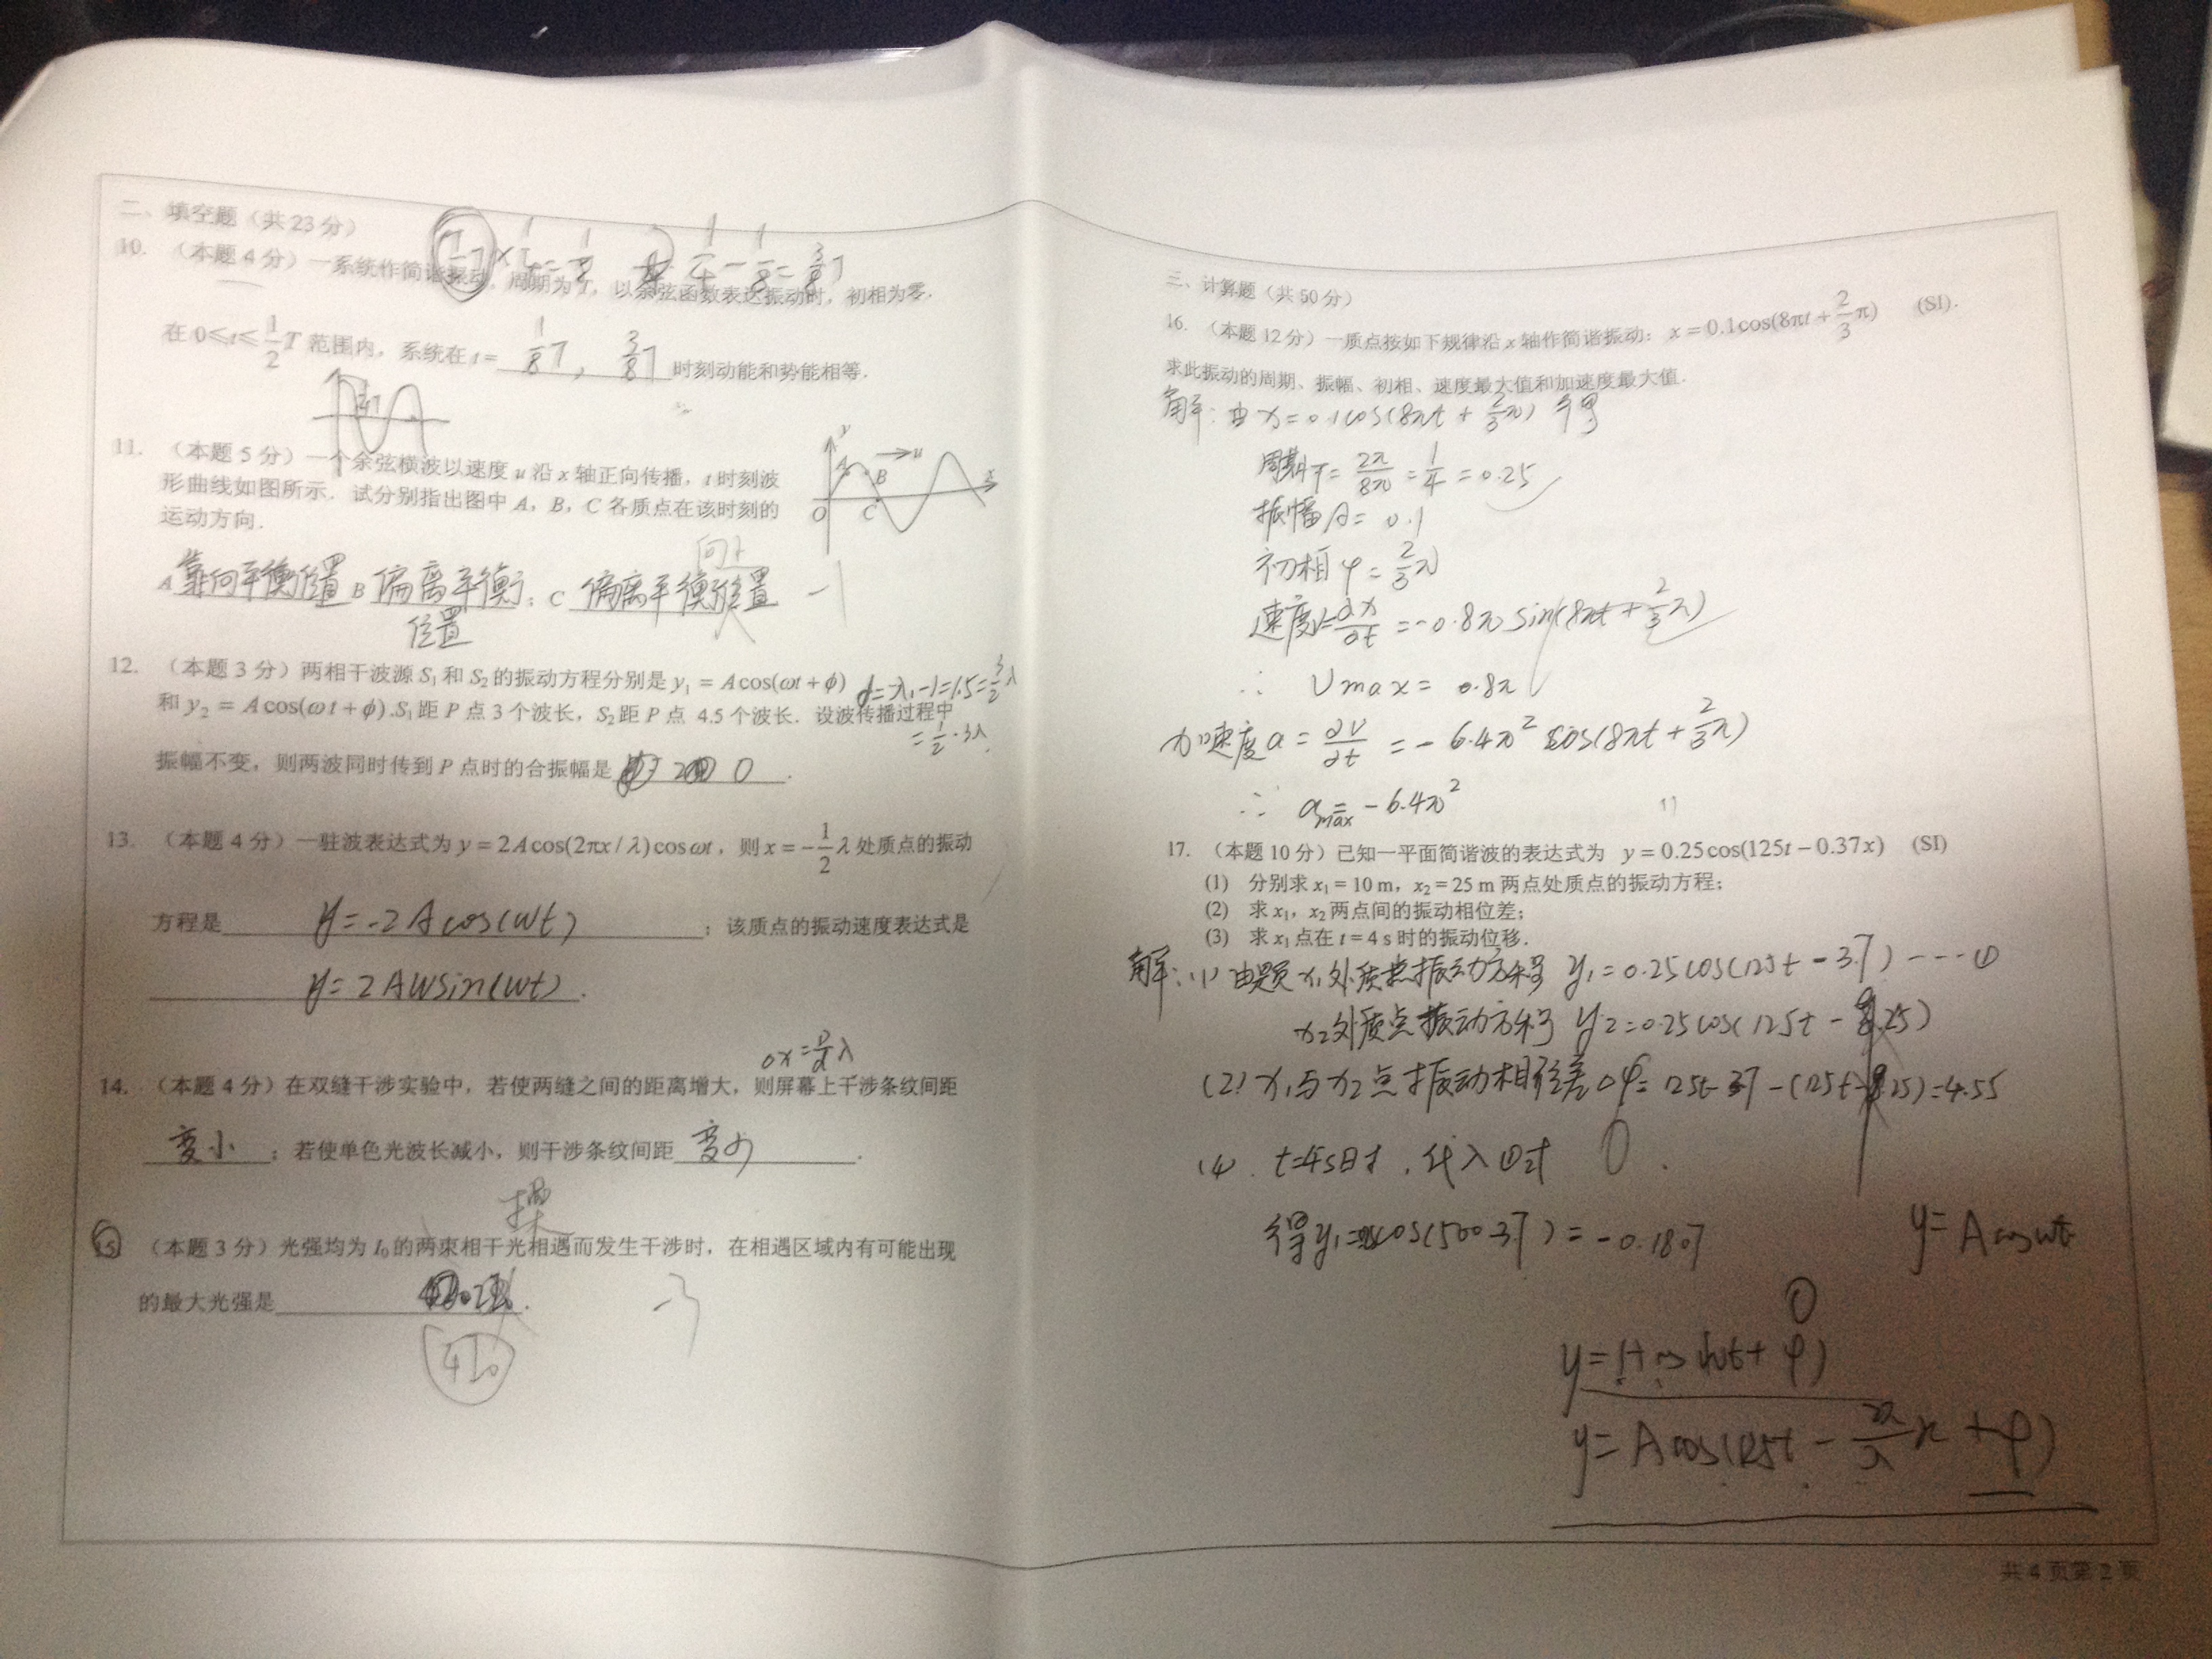 二、填空题（共 23 分）
10. （本题 4 分）一系统作简谐振动，周期为 T，以余弦函数表达振动时，初相为零．
1/4 - 1/8 = 3/8 T
在 0≤t≤1/2 T 范围内，系统在 t = 1/8 T , 3/8 T 时刻动能和势能相等．
11. （本题 5 分）一个余弦横波以速度 u 沿 x 轴正向传播，t 时刻波
形曲线如图所示．试分别指出图中 A，B，C 各质点在该时刻的
运动方向．
y
A B u
O C x
向上
A 靠向平衡位置 B 偏离平衡 ; C 偏离平衡位置 -1
位置
12. （本题 3 分）两相干波源 S₁ 和 S₂ 的振动方程分别是 y₁ = A cos(ωt + ϕ)
和 y₂ = A cos(ω t + ϕ).S₁ 距 P 点 3 个波长，S₂ 距 P 点 4.5 个波长．设波传播过程中
= 1/2 · 3λ
振幅不变，则两波同时传到 P 点时的合振幅是 0 .
13. （本题 4 分）一驻波表达式为 y = 2A cos(2πx / λ) cos ωt，则 x = -1/2 λ 处质点的振动
方程是 y = -2 A cos(wt) ；该质点的振动速度表达式是
y = 2 A W sin(wt) .
Δx = D/d λ
14. （本题 4 分）在双缝干涉实验中，若使两缝之间的距离增大，则屏幕上干涉条纹间距
变小 ；若使单色光波长减小，则干涉条纹间距 变小 .
15. （本题 3 分）光强均为 I₀ 的两束相干光相遇而发生干涉时，在相遇区域内有可能出现
的最大光强是 . -3
4I₀
三、计算题（共 50 分）
16. （本题 12 分）一质点按如下规律沿 x 轴作简谐振动： x = 0.1cos(8πt + 2/3 π) (SI).
求此振动的周期、振幅、初相、速度最大值和加速度最大值．
解：由 x = 0.1cos(8πt + 2/3 π) 得
周期 T = 2π/8π = 1/4 = 0.25
振幅 A = 0.1
初相 φ = 2/3 π
速度 V = dx/dt = -0.8π sin(8πt + 2/3 π)
∴ Vmax = 0.8π
加速度 a = dV/dt = - 6.4π² cos(8πt + 2/3 π)
∴ amax = -6.4π²
11
17. （本题 10 分）已知一平面简谐波的表达式为 y = 0.25cos(125t − 0.37x) (SI)
(1) 分别求 x₁ = 10 m，x₂ = 25 m 两点处质点的振动方程；
(2) 求 x₁，x₂ 两点间的振动相位差；
(3) 求 x₁ 点在 t = 4 s 时的振动位移．
解：(1) 由题 x₁ 处质点振动方程 y₁ = 0.25 cos(125t - 3.7) --- ①
x₂ 处质点振动方程 y₂ = 0.25 cos(125t - .25)
(2) x₁ 与 x₂ 点振动相位差 Δφ = 125t - 3.7 - (125t - .25) = 4.55
(4) t=4s时，代入①式 0
得 y₁ = cos(500 - 3.7) = -0.1807
y = A cos wt
0
y = A cos(wt + φ)
y = A cos(125t - 2π/λ x + φ)
共 4 页第 2 页